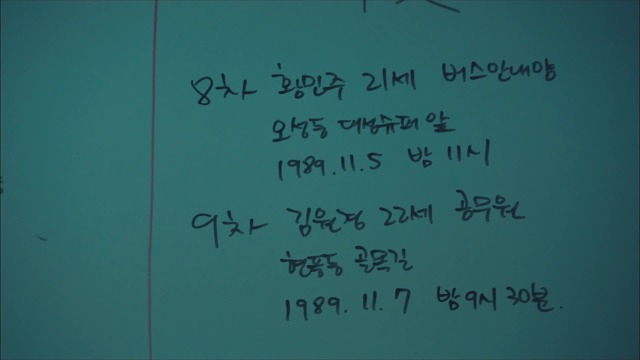 8차 황민주 21세 버스안내양
오성동 대성슈퍼 앞
1989.11.5 밤 11시
9차 김원경 22세 공무원
현풍동 골목길
1989.11.7 밤 9시 30분.